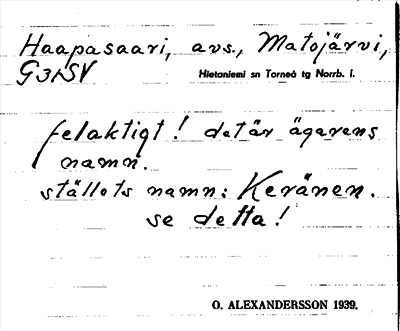 Haapasaari, avs., Matojärvi,
G3ASV Hietaniemi sn Torneå tg Norrb. l.
felaktigt! det är ägarens
namn.
ställets namn: Keränen.
se detta!
O. ALEXANDERSSON 1939.